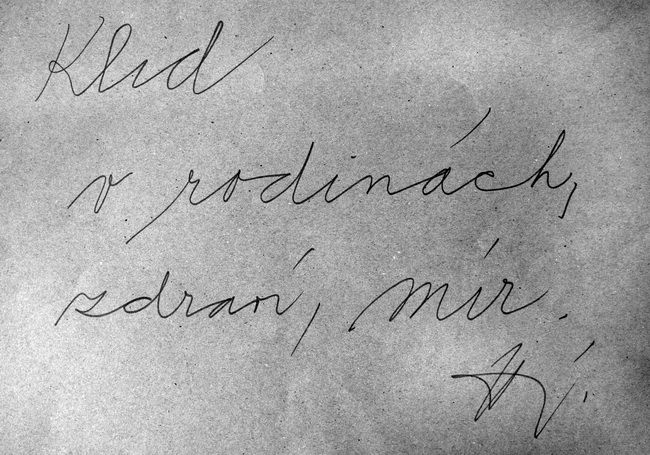 Klid
v rodinách,
zdraví, mír.